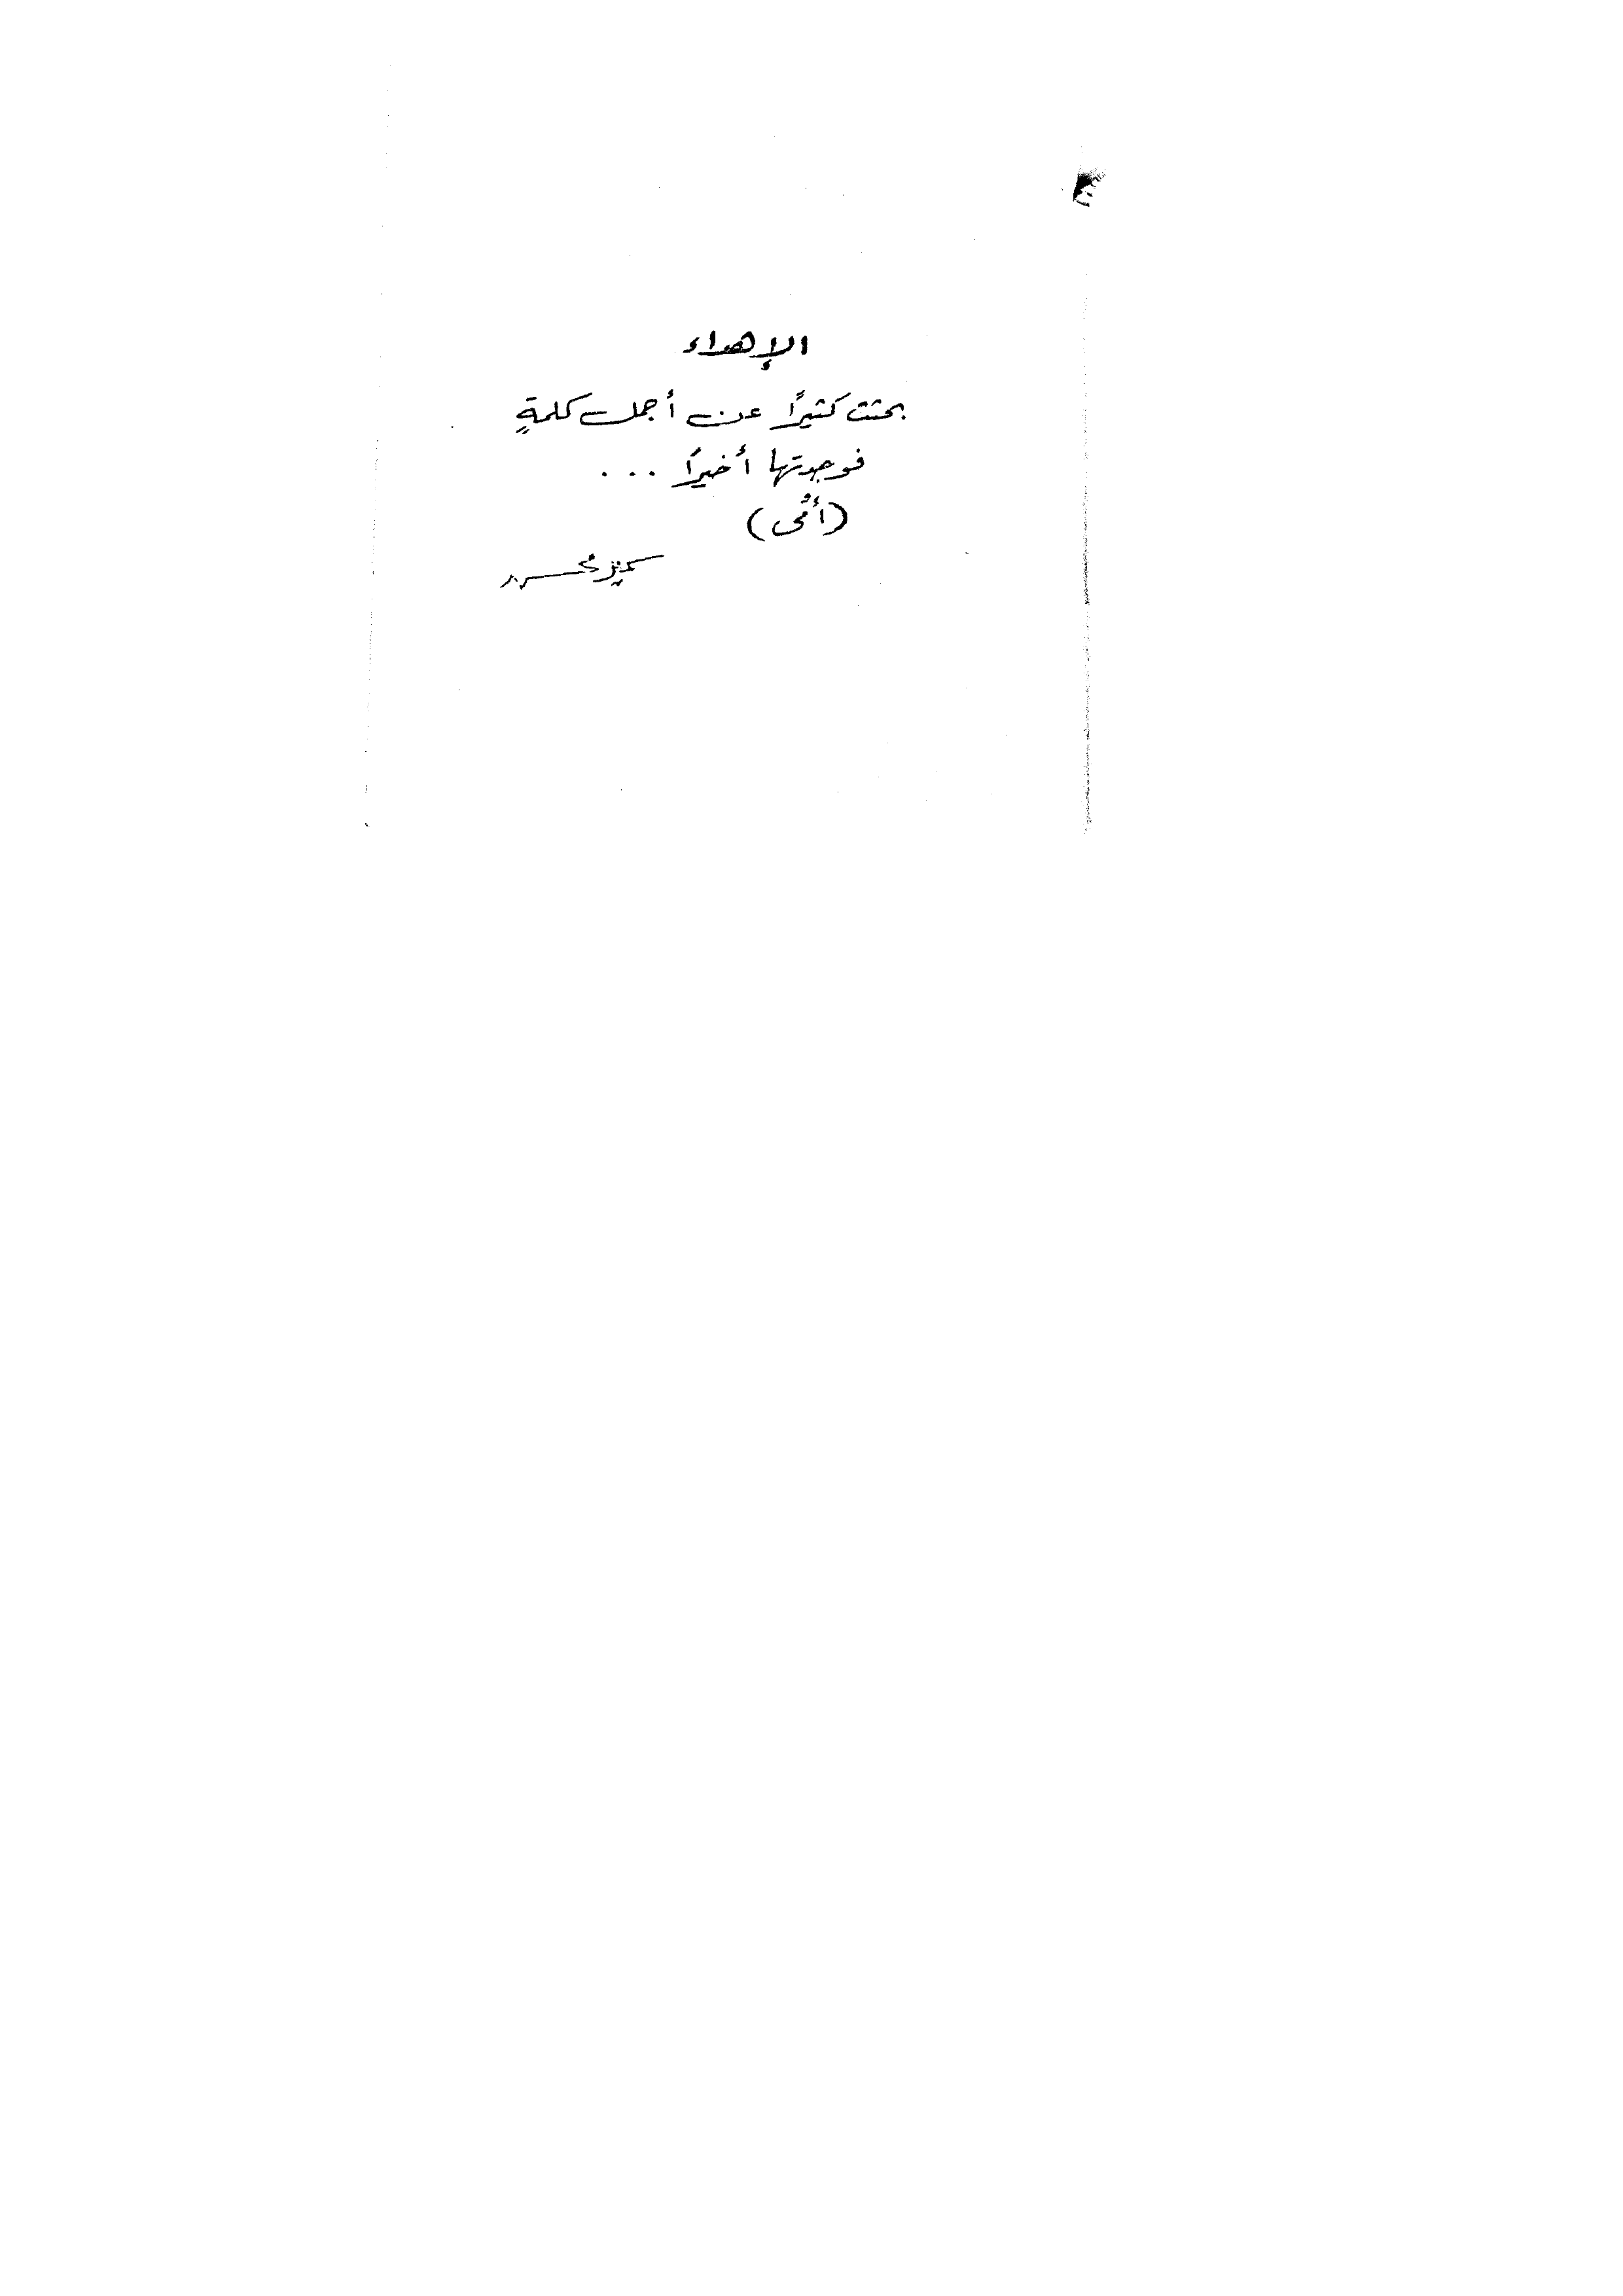 الإهداء
بحثت كثيرًا عن أجمل كلمةٍ
فوجدتها أخيرًا ...
(أمُّى)